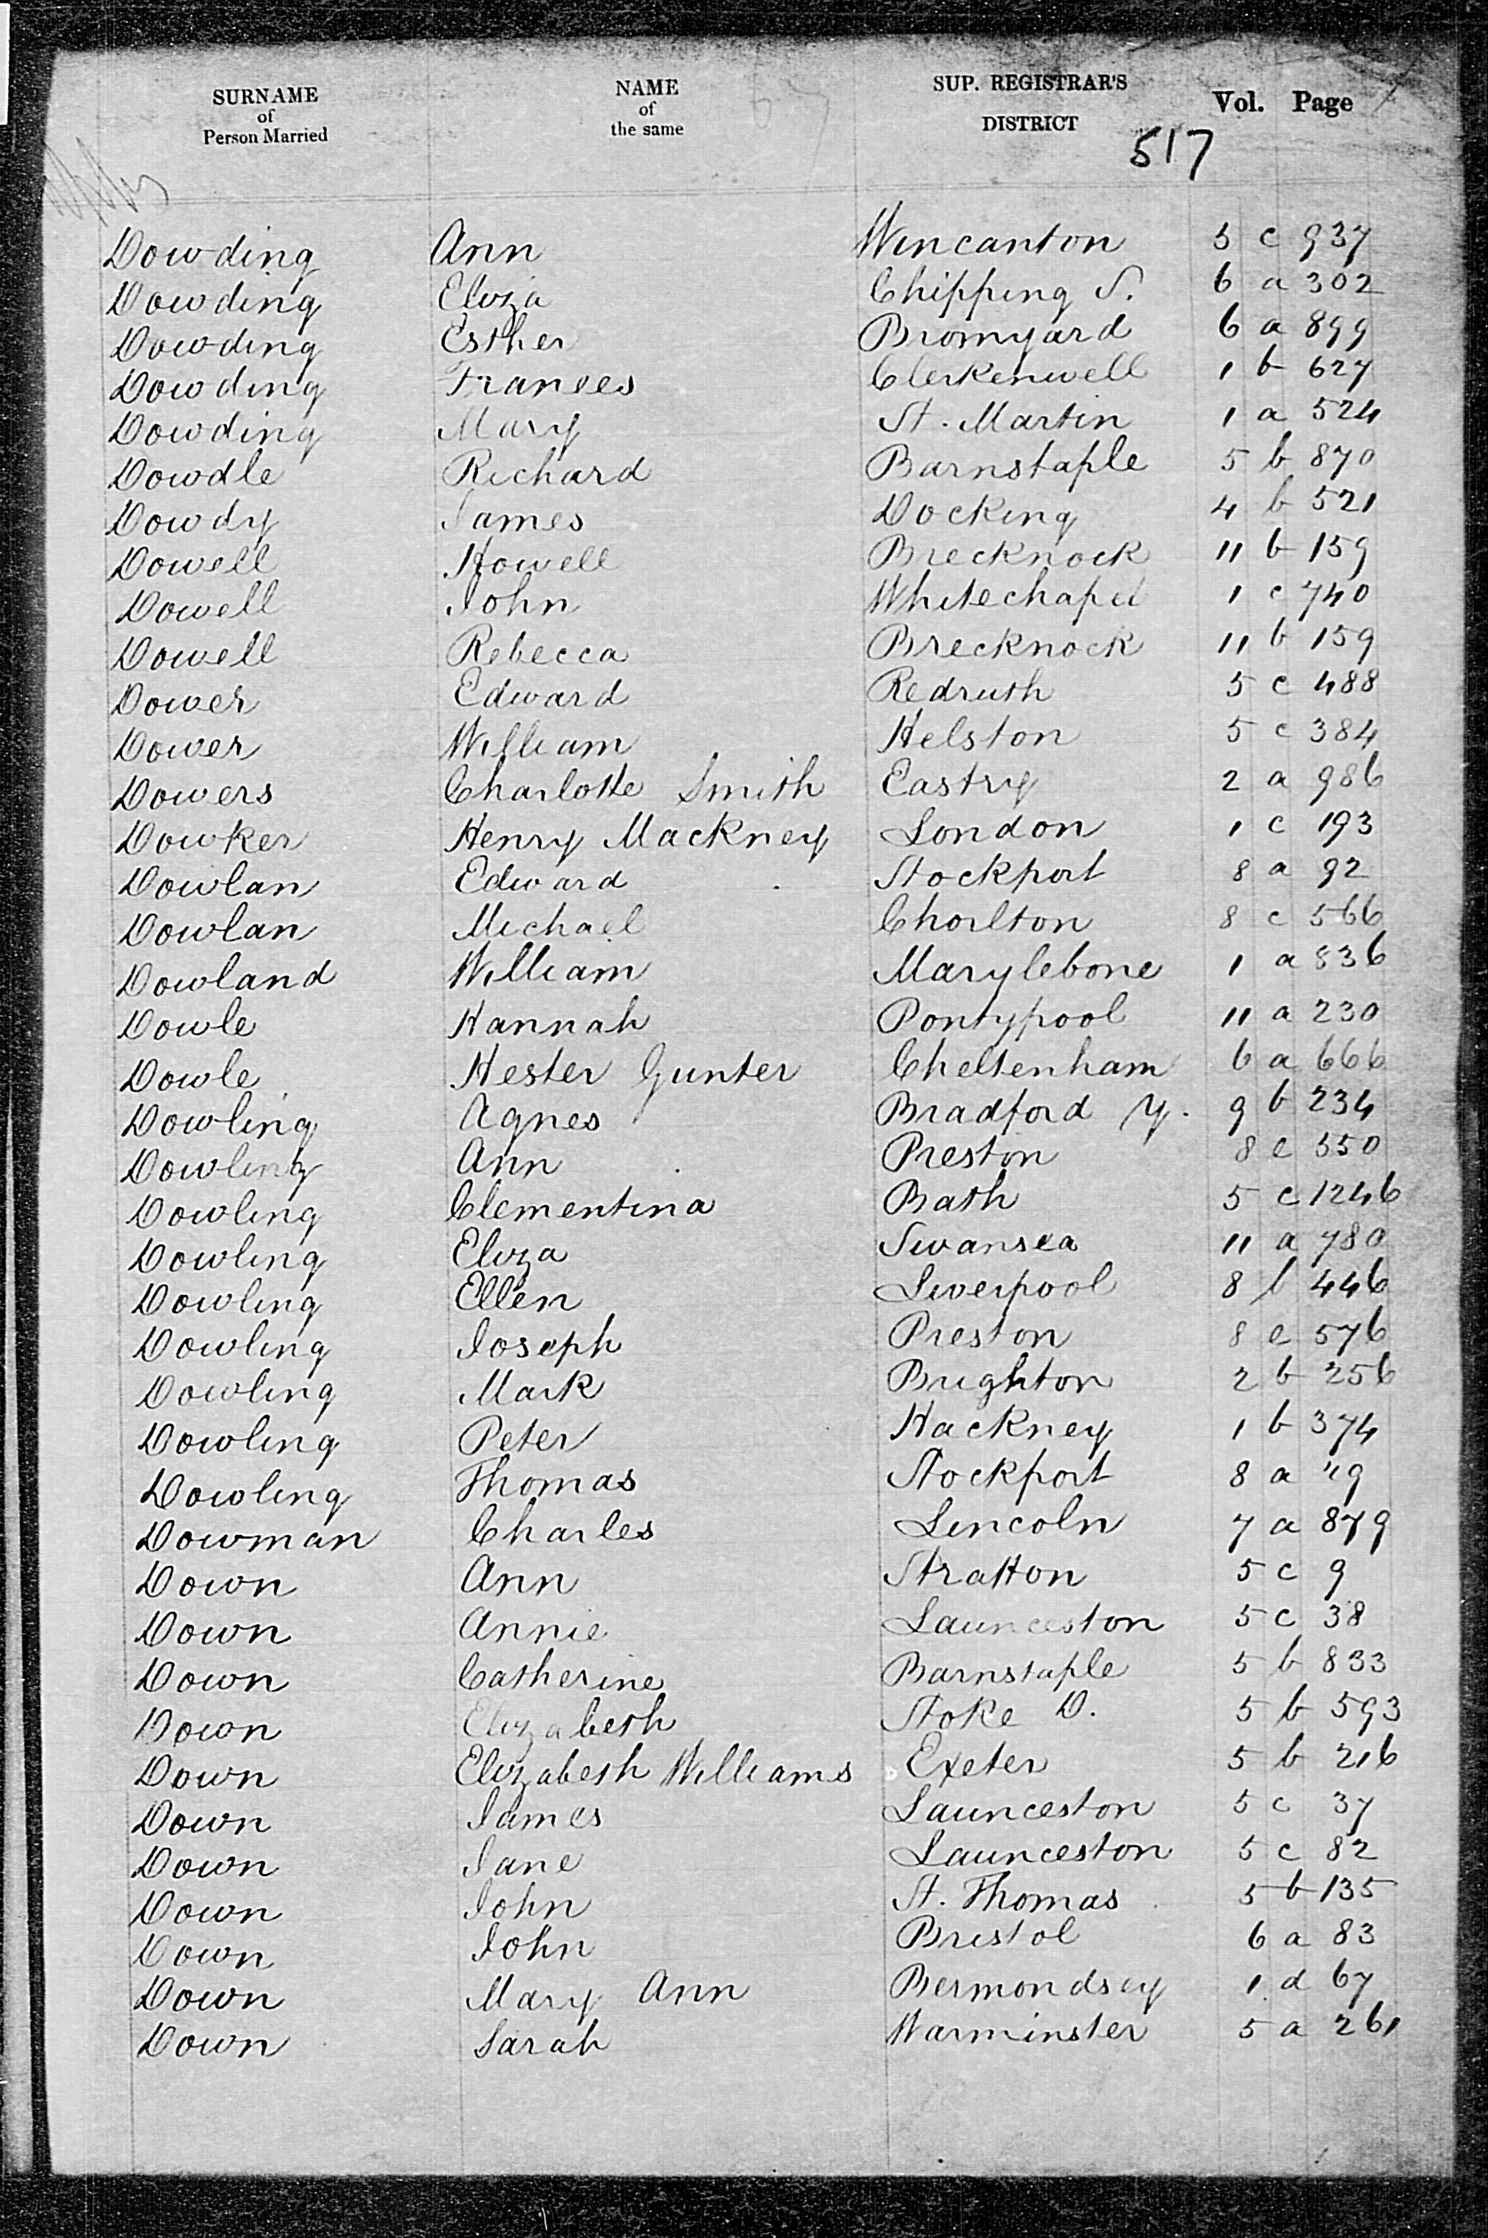 SURNAME of Person Married NAME of the same SUP. REGISTRAR'S DISTRICT Vol. Page
517
Dowding Ann Wincanton 5 c 937
Dowding Eliza Chipping S. 6 a 302
Dowding Esther Bromyard 6 a 899
Dowding Frances Clerkenwell 1 b 627
Dowding Mary St. Martin 1 a 524
Dowdle Richard Barnstaple 5 b 870
Dowdy James Docking 4 b 521
Dowell Howell Brecknock 11 b 159
Dowell John Whitechapel 1 c 740
Dowell Rebecca Brecknock 11 b 159
Dower Edward Redruth 5 c 488
Dower William Helston 5 c 384
Dowers Charlotte Smith Eastry 2 a 986
Dowker Henry Mackney London 1 c 193
Dowlan Edward Stockport 8 a 92
Dowlan Michael Chorlton 8 c 566
Dowland William Marylebone 1 a 836
Dowle Hannah Pontypool 11 a 230
Dowle Hester Gunter Cheltenham 6 a 666
Dowling Agnes Bradford Y. 9 b 234
Dowling Ann Preston 8 e 550
Dowling Clementina Bath 5 c 1246
Dowling Eliza Swansea 11 a 780
Dowling Ellen Liverpool 8 b 446
Dowling Joseph Preston 8 e 576
Dowling Mark Brighton 2 b 256
Dowling Peter Hackney 1 b 374
Dowling Thomas Stockport 8 a
Dowman Charles Lincoln 7 a 879
Down Ann Stratton 5 c 9
Down Annie Launceston 5 c 38
Down Catherine Barnstaple 5 b 833
Down Elizabeth Stoke D. 5 b 593
Down Elizabeth Williams Exeter 5 b 216
Down James Launceston 5 c 37
Down Jane Launceston 5 c 82
Down John St. Thomas 5 b 135
Down John Bristol 6 a 83
Down Mary Ann Bermondsey 1 d 67
Down Sarah Warminster 5 a 261